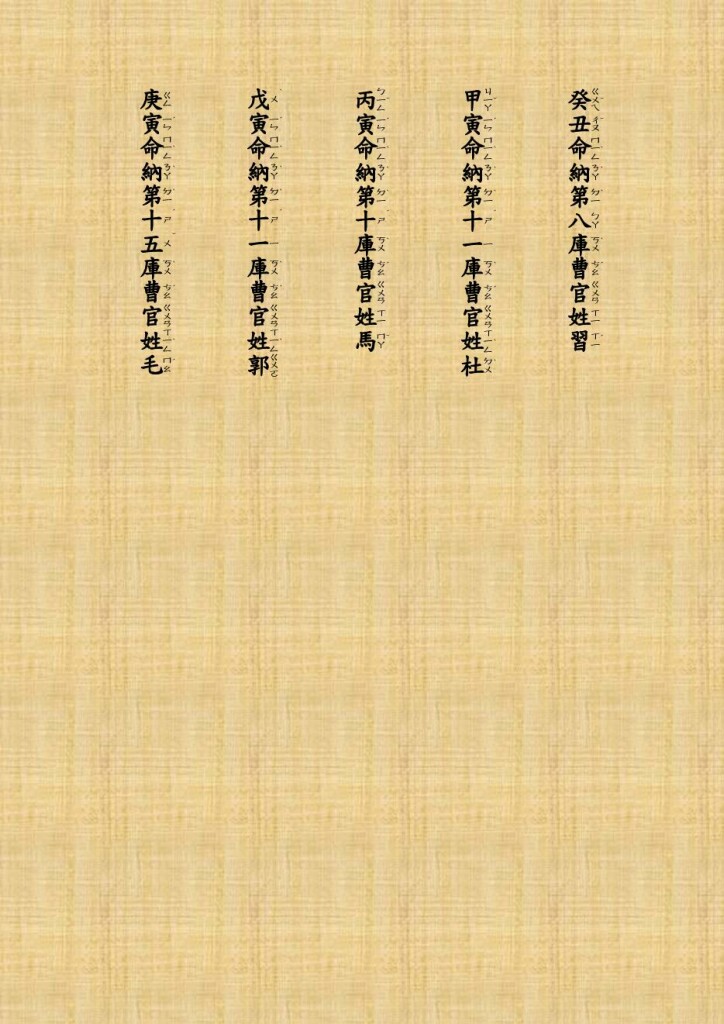 癸丑命納第八庫曹官姓習
甲寅命納第十一庫曹官姓杜
丙寅命納第十庫曹官姓馬
戊寅命納第十一庫曹官姓郭
庚寅命納第十五庫曹官姓毛